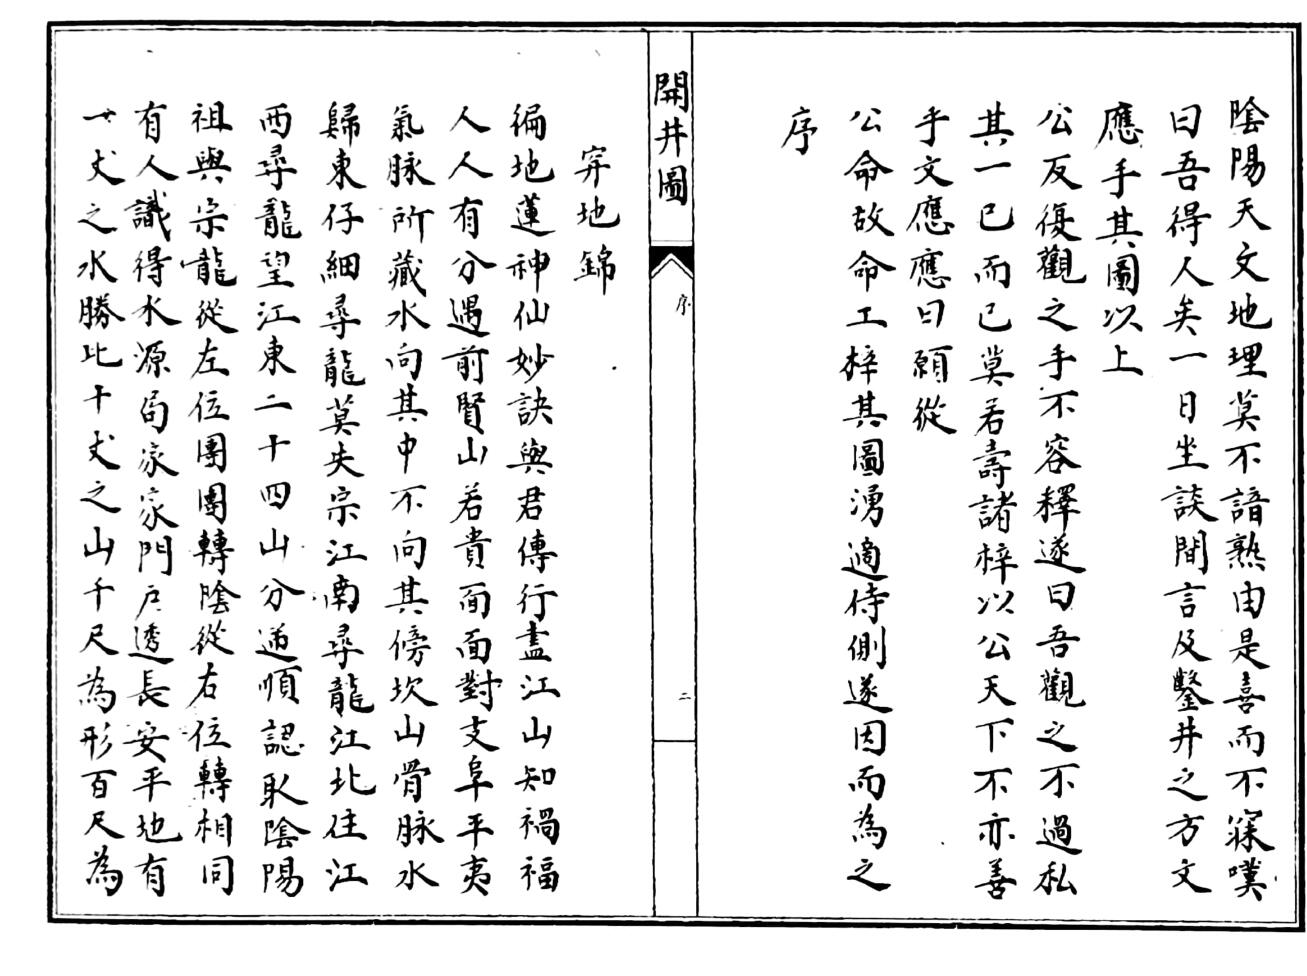 陰陽天文地理莫不諳熟由是喜而不寐嘆
曰吾得人矣一日坐談間言及鑿井之方文
應手其圖以上
公反復觀之手不容釋遂曰吾觀之不過私
其一已而已莫若壽諸梓以公天下不亦善
乎文應應曰願從
公命故命工梓其圖湧適侍側遂因而為之
序
開井圖
序
二
穽地錦
徧地蓮神仙妙訣與君傳行盡江山知禍福
人人有分遇前賢山若貴面面對支阜平夷
氣脉所藏水向其中不向其傍坎山骨脉水
歸東仔細尋龍莫失宗江南尋龍江北住江
西尋龍望江東二十四山分逓順認取陰陽
祖與宗龍從左位團團轉陰從右位轉相同
有人識得水源局家家門戶透長安平地有
一丈之水勝比十丈之山千尺為形百尺為